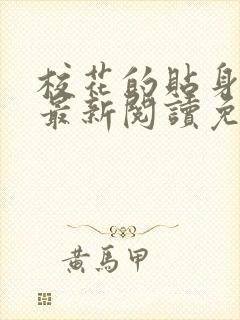 校花的貼身
最新閱讀免
黃馬甲